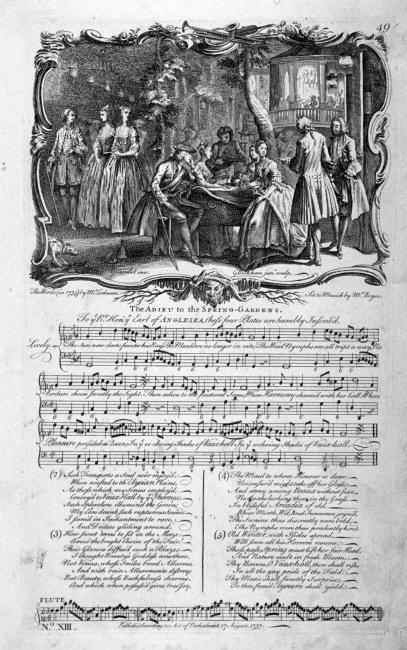 49
Gravelot inv.
G. Bickham junr. sculp.
The Words (in 1739) by Mr. Lockman
Set to Musick by Mr. Boyce.
The ADIEU to the SPRING-GARDENS.
To ye Rt. Hon. ye Earl of ANGLESEA, these four Plates are humbly Inscrib'd.
Lively. The Sun now darts fainter his Ray, The Meadows no longer in vite, The Wood Nymphs are all tript a way, No
Verdure cheers sweetly the Sight. Then adieu to the pastoral Scene, Where Harmony charm'd with her Call, Where
Pleasure presided as Queen, In ye ecchoing Shades of Vauxhall, In ye ecchoing Shades of Vauxhall.
(2) Such Transports a Soul ne'er enjoy'd,
When wafted to th' Elysian Plains,
As those which my Senses employ'd,
Convey'd to Vaux Hall by ye Thames.
Such Splendors illumin'd the Grove,
My Ears drank such rapturous Sounds,
I seem'd in Enchantment to rove,
And Deities gliding around.
(3) How sweet 'twas to sit in the Maze
Amid the bright Choirs of the Fair,
Their Glances diffus'd such a Blaze,
I thought Beauty's Goddess was there,
Not Venus, whose Smiles breed Allarms,
And with loose Allurements destroys
But Beauty, whose Bashfulness charms,
And which when possess'd gives true Joy.
(4) The Maid to whom Honour is dear
Uncensur'd might take off her Glass;
And stray among Beaus without fear,
No Snake lurking there in the Grass.
In blissful Arcadia of old,
Where Mirth, Wit, And Innocence joyn'd,
The Swains thus discreetly were bold,
The Nymphs were thus prudently kind.
(5) Old Winter, with Sides spread,
Will soon his black Visage disclose;
These past, Spring must lift her fair Head,
And Nature awake in fresh Bloom.
Thy Bowers, O Vauxhall, then shall rise,
In all the gay pride of the Field;
Thy Musick shall sweetly Surprize;
To thee, fam'd Elysium shall yield.
FLUTE
No. XIII.
Publish'd according to Act of Parliament, 17 August, 1737.